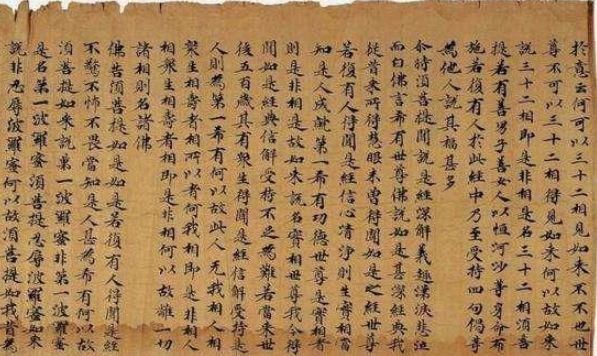 於意云何可以三十二相見如来不不也世
尊不可以三十二相得見如来何以故如来
說三十二相即是非相是名三十二相湏菩
提若有善男子善女人以恒河沙等身命布
施若復有人於此經中乃至受持四句偈等
為他人說其福甚多
尒時湏菩提聞說是經深解義趣涕淚悲泣
而白佛言希有世尊佛說如是甚深經典我
從昔来所得慧眼未曾得聞如是之經世尊
若復有人得聞是經信心清淨則生實相當
知是人成就第一希有功德世尊是實相者
則是非相是故如来說名實相世尊我今得
聞如是經典信解受持不足為難若當来世
後五百歲其有衆生得聞是經信解受持是
人則為第一希有何以故此人无我相人相
衆生相壽者相所以者何我相即是非相人
相衆生相壽者相即是非相何以故離一切
諸相則名諸佛
佛告湏菩提如是如是若復有人得聞是經
不驚不怖不畏當知是人甚為希有何以故
湏菩提如来說第一波羅蜜非第一波羅蜜
是名第一波羅蜜湏菩提忍辱波羅蜜如来
說非忍辱波羅蜜何以故湏菩提如我昔為